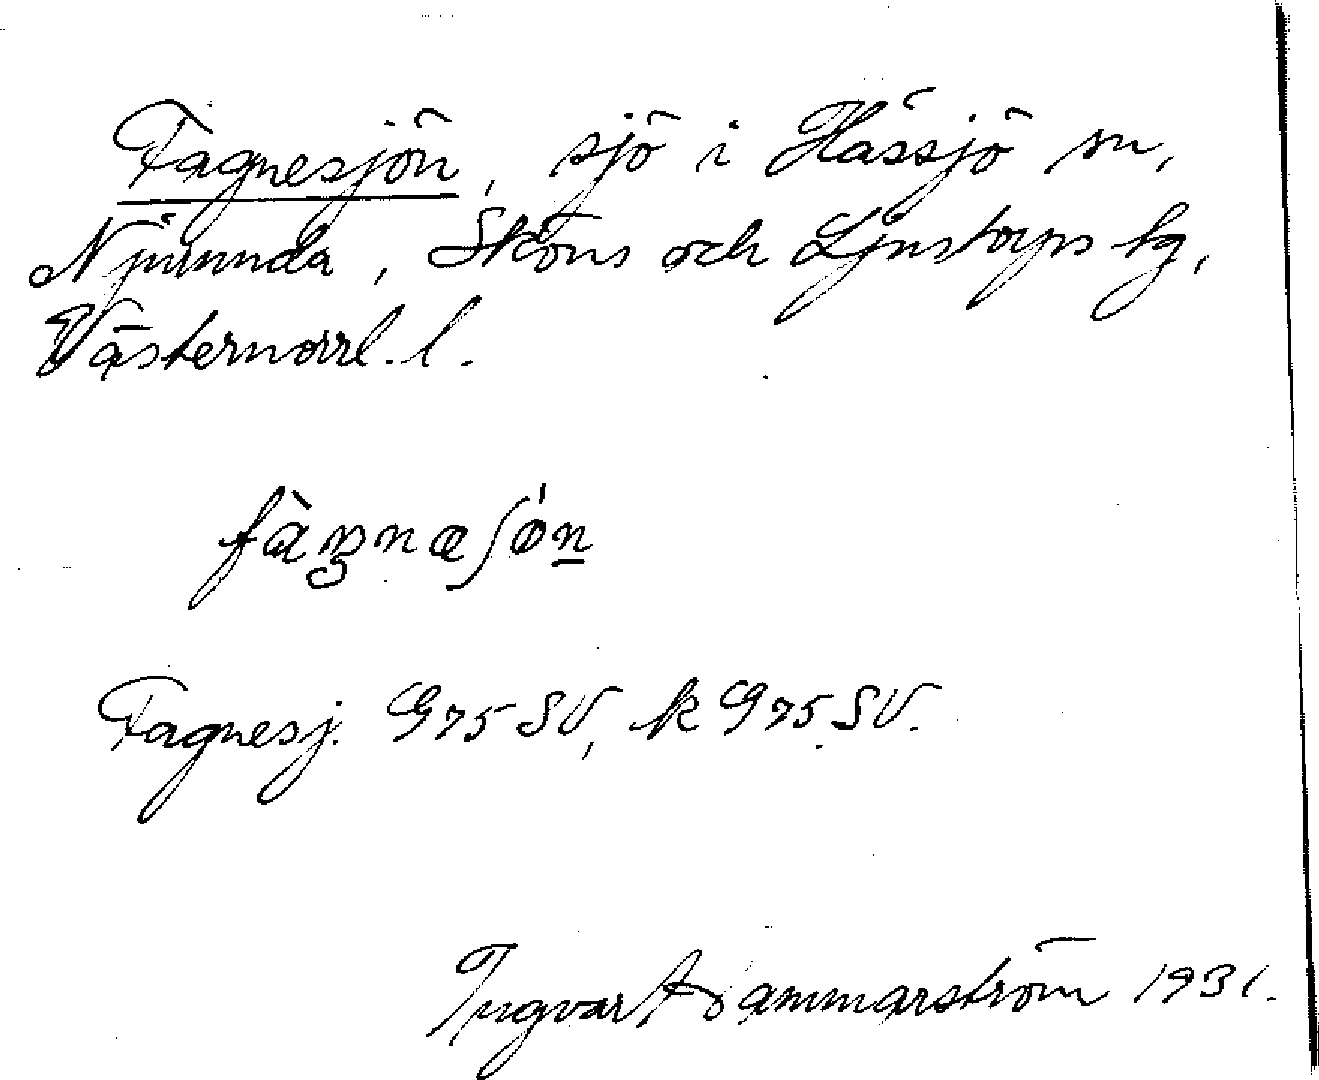 Fagnesjön, sjö i Hässjö sn,
Njurunda, Sköns och Ljustorps tg,
Västernorrl. l.
fàŋnaʃǿn
Fagnesj. G75 SV, k G75 SV.
Ingvar Hammarström 1931.